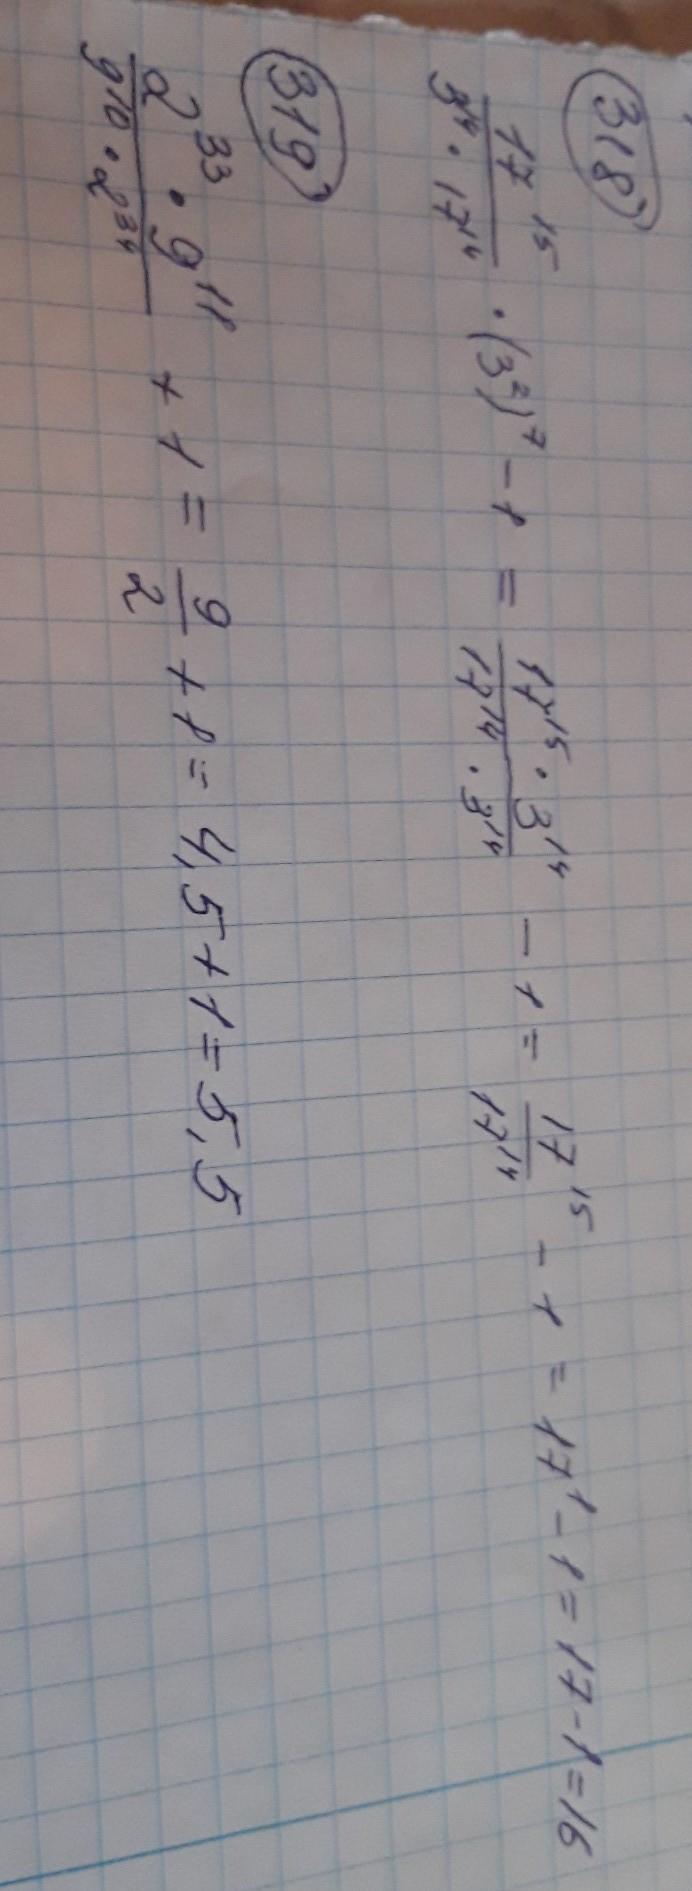 318
17¹⁵/(3⁴ · 17¹⁴) · (3²)⁷ - 1 = (17¹⁵ · 3¹⁴)/(17¹⁴ · 3¹⁴) - 1 = 17¹⁵/17¹⁴ - 1 = 17¹ - 1 = 17 - 1 = 16
319
(2³³ · 9¹¹)/(9¹⁰ · 2³⁴) + 1 = 9/2 + 1 = 4,5 + 1 = 5,5